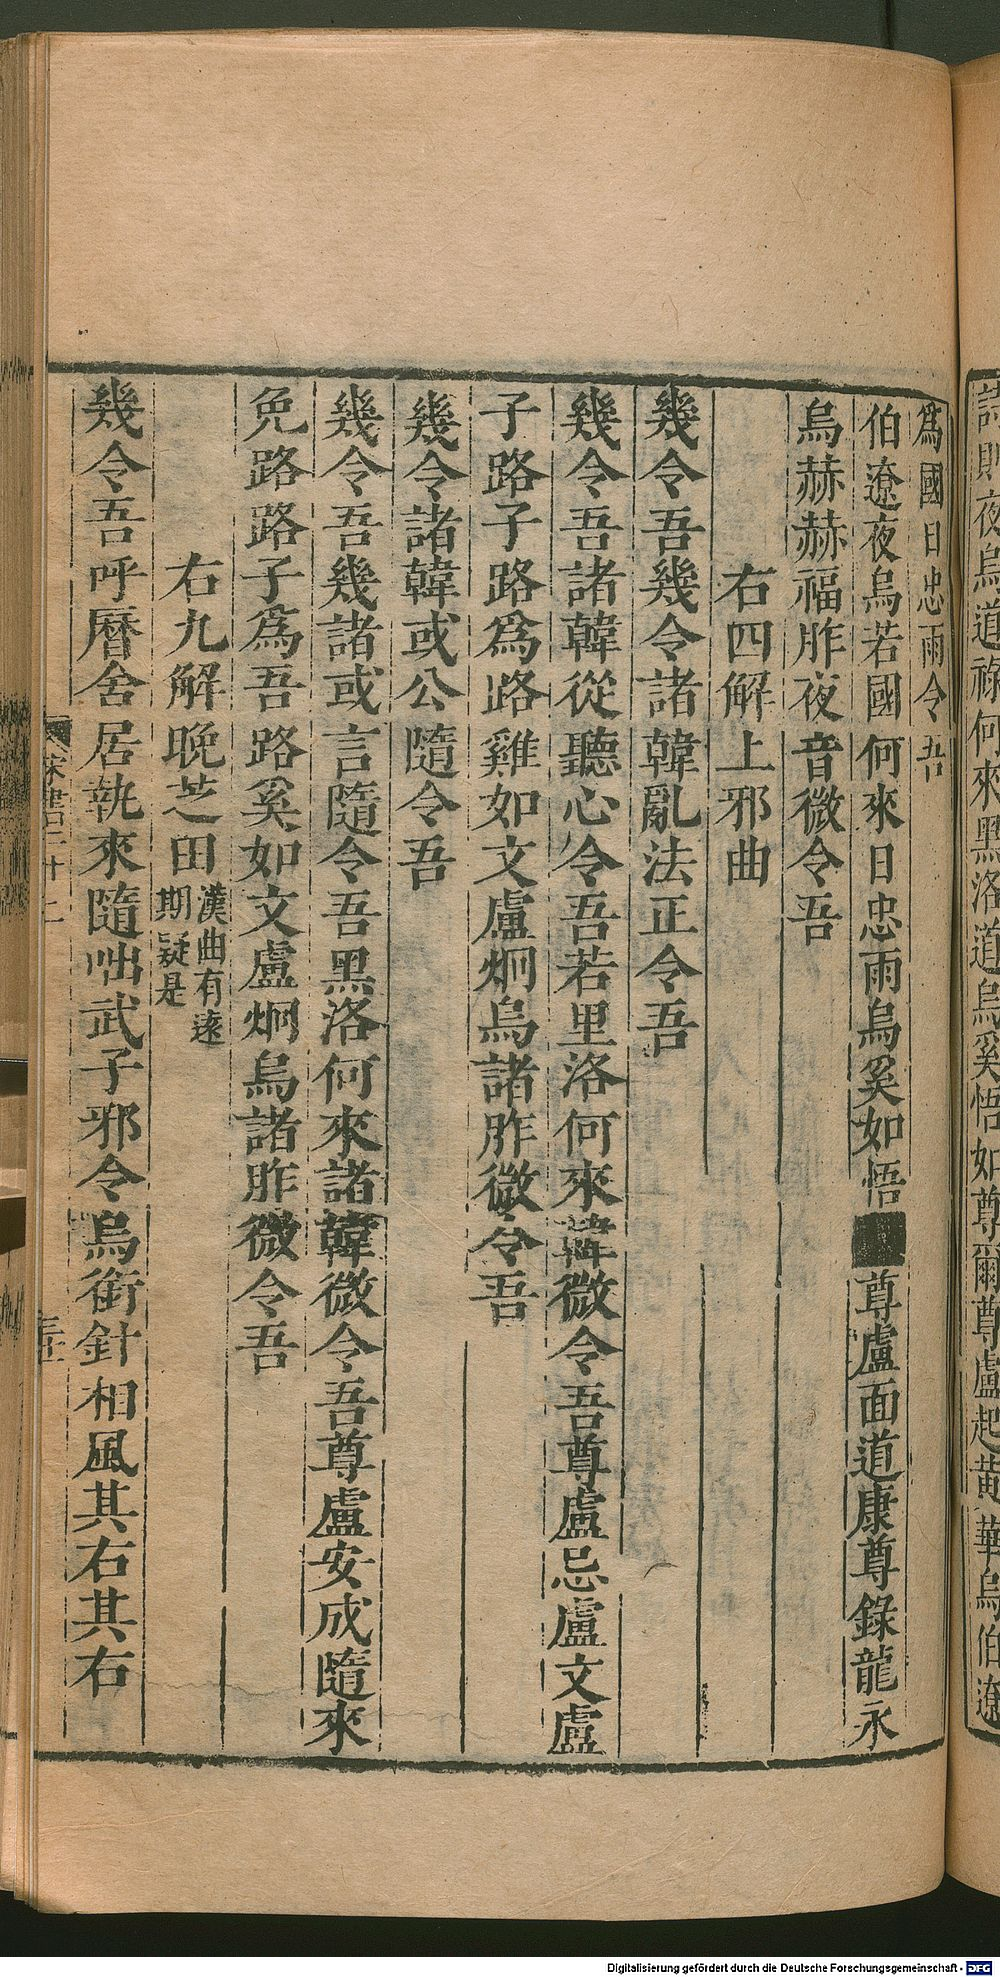 詩則夜烏道祿何來黑洛道烏奚悟如尊爾尊盧起黃華烏伯遼
爲國日忠雨令吾
伯遼夜烏若國何來日忠雨烏奚如悟■尊盧面道康尊錄龍永
烏赫赫福胙夜音微令吾
右四解上邪曲
幾令吾幾令諸韓亂法正令吾
幾令吾諸韓從聽心令吾若里洛何來韓微令吾尊盧忌盧文盧
子路子路爲路雞如文盧炯烏諸胙微令吾
幾令諸韓或公隨令吾
幾令吾幾諸或言隨令吾黑洛何來諸韓微令吾尊盧安成隨來
免路路子爲吾路奚如文盧炯烏諸胙微令吾
右九解晚芝田漢曲有遠期疑是
幾令吾呼曆舍居執來隨咄武子邪令烏銜針相風其右其右
宋書二十二
Digitalisierung gefördert durch die Deutsche Forschungsgemeinschaft - DFG